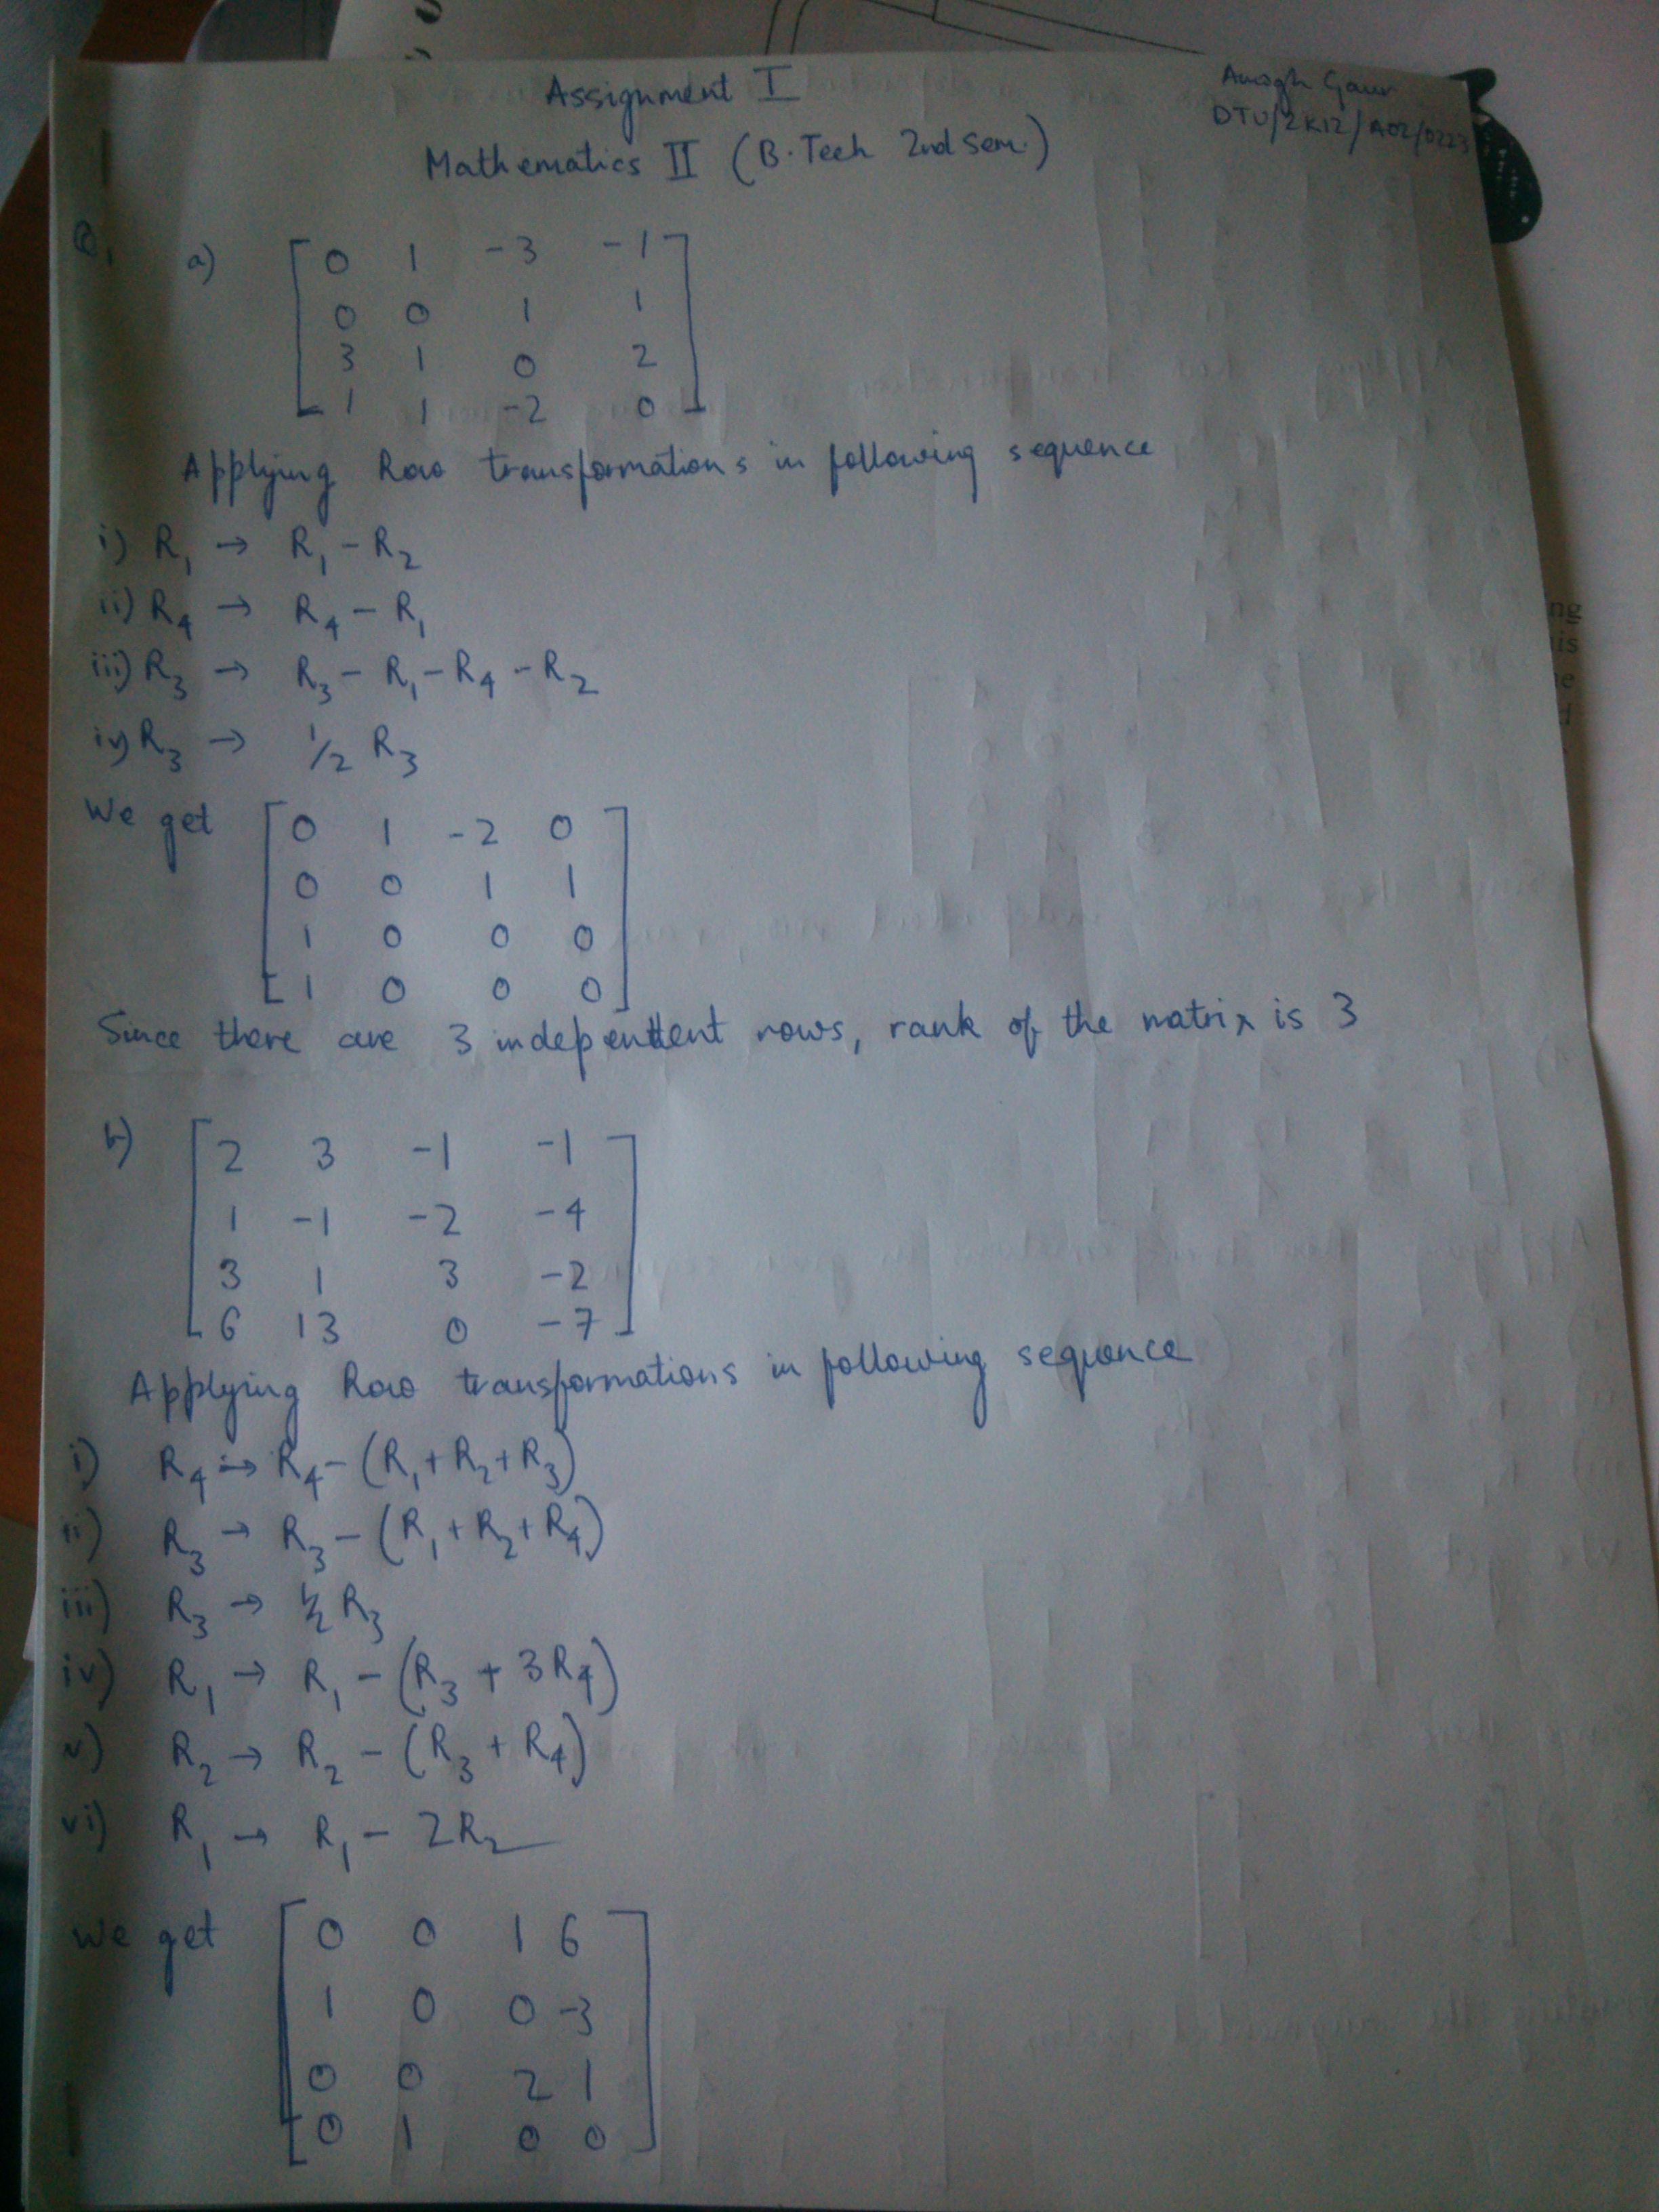 Assignment I
Amogh Gaur
DTU/2K12/A02/0223
Mathematics II (B.Tech 2nd Sem.)
Q1 a) [ 0 1 -3 -1
0 0 1 1
3 1 0 2
1 1 -2 0 ]
Applying Row transformations in following sequence
i) R1 → R1 - R2
ii) R4 → R4 - R1
iii) R3 → R3 - R1 - R4 - R2
iv) R3 → 1/2 R3
We get [ 0 1 -2 0
0 0 1 1
1 0 0 0
1 0 0 0 ]
Since there are 3 independent rows, rank of the matrix is 3
b) [ 2 3 -1 -1
1 -1 -2 -4
3 1 3 -2
6 13 0 -7 ]
Applying Row transformations in following sequence
i) R4 → R4 - (R1 + R2 + R3)
ii) R3 → R3 - (R1 + R2 + R4)
iii) R3 → 1/2 R3
iv) R1 → R1 - (R3 + 3R4)
v) R2 → R2 - (R3 + R4)
vi) R1 → R1 - 2R2
We get [ 0 0 1 6
1 0 0 -3
0 0 2 1
0 1 0 0 ]
ng
is